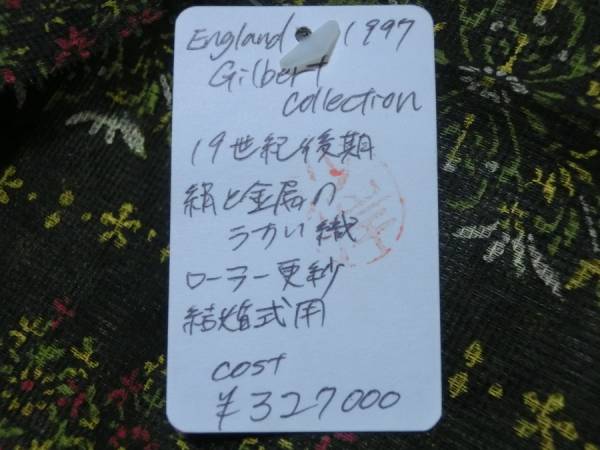 England 1997
Gilbert
collection
19世紀後期
絹と金属の
うかい織
ローラー更紗
結婚式用
cost
¥327000